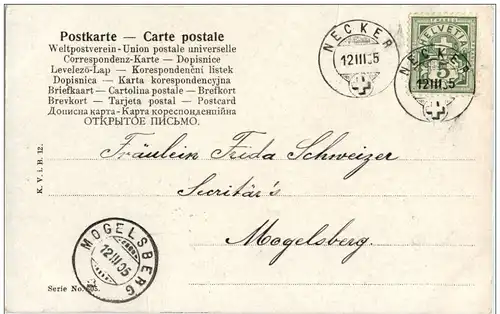 Postkarte — Carte postale
Weltpostverein - Union postale universelle
Correspondenz-Karte — Dopisnice
Levelező-Lap — Korespondenční lístek
Dopisnica — Karta korespondencyjna
Briefkaart — Cartolina postale — Brefkort
Brevkort — Tarjeta postal — Postcard
Дописна карта - Карта кореспонденційна
ОТКРЫТОЕ ПИСЬМО.
NECKER
12 III 05
HELVETIA
FRANCO
5
NECKER
12 III 05
K. V. i. B. 12.
Fräulein Frida Schweizer
Secritär's
Mogelsberg.
MOGELSBERG
12 III 05
Serie No.